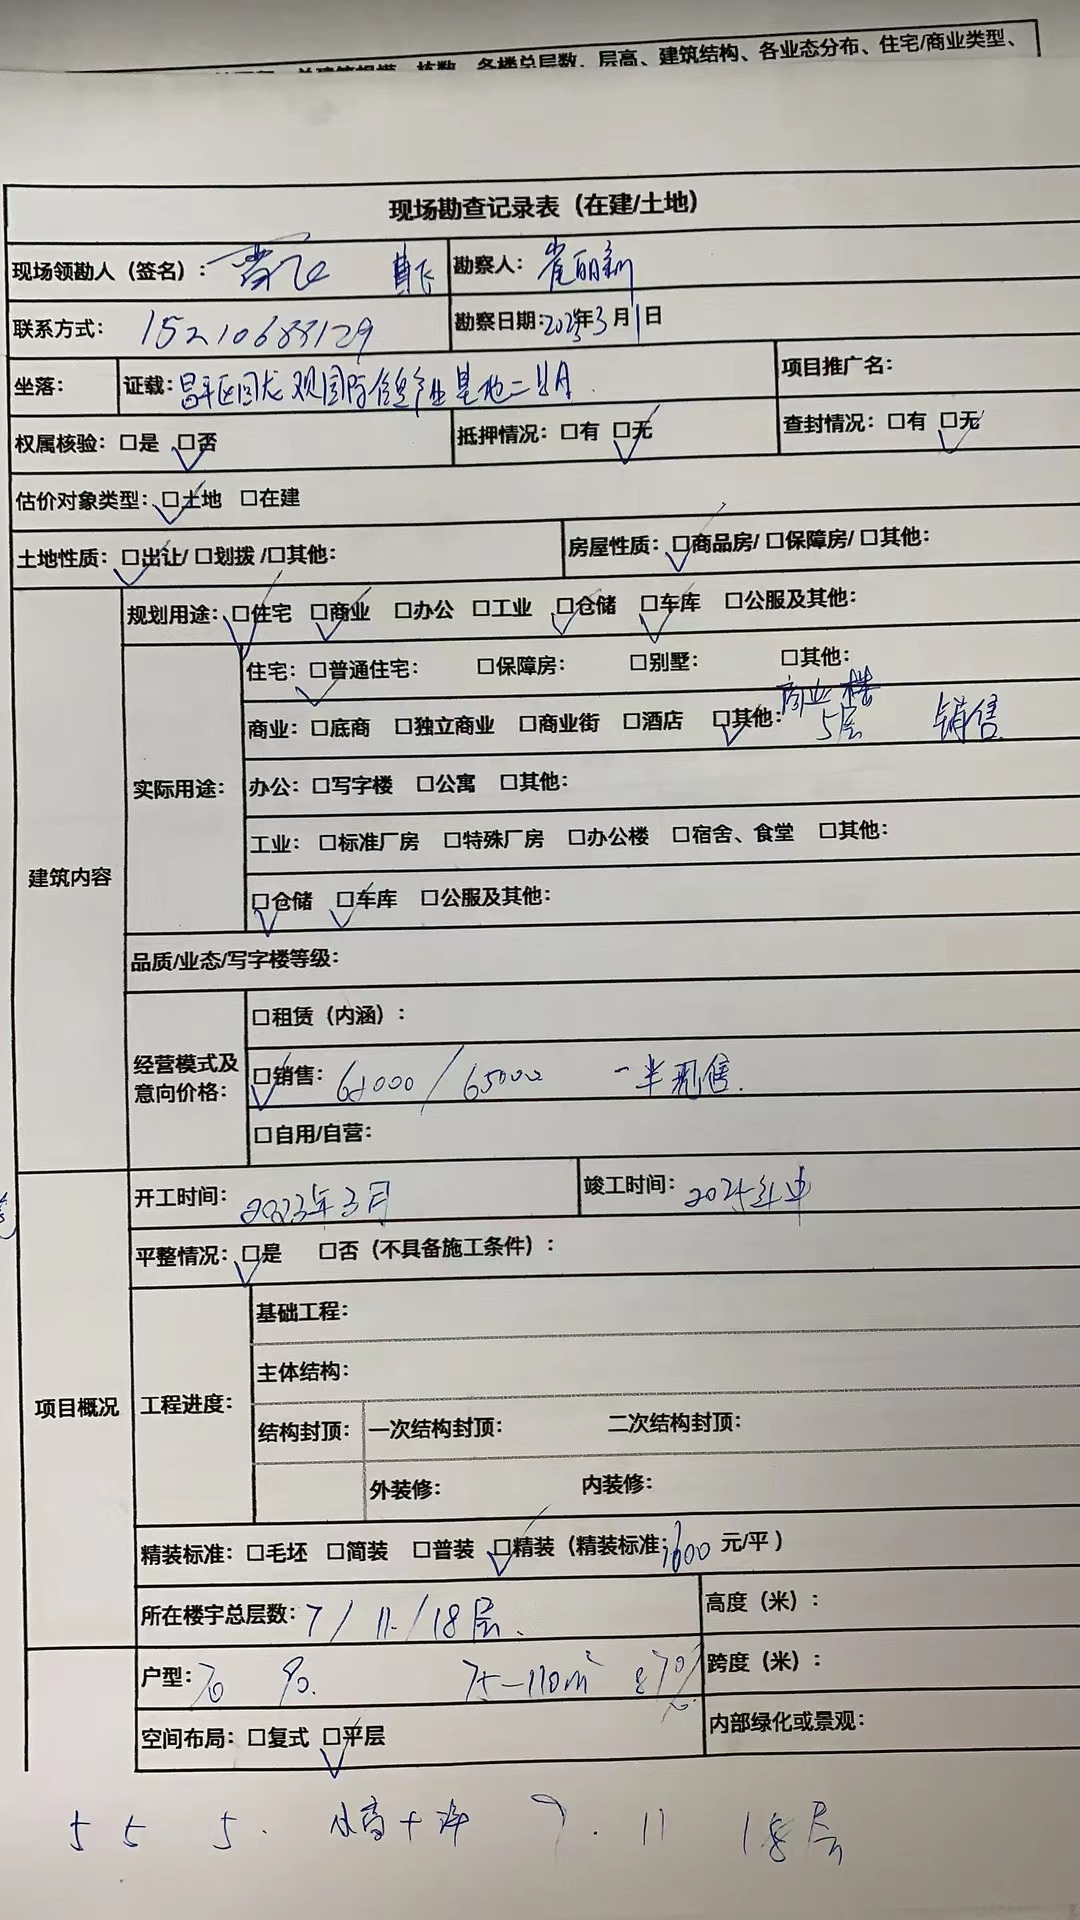 各楼总层数、层高、建筑结构、各业态分布、住宅/商业类型、
现场勘查记录表（在建/土地）
现场领勘人（签名）： 勘察人：崔丽新
联系方式： 勘察日期：2025年3月1日
坐落： 证载：昌平区回龙观国际信息产业基地二 项目推广名：
权属核验：☐是 ☑否 抵押情况：☐有 ☑无 查封情况：☐有 ☑无
估价对象类型：☑土地 ☐在建
土地性质：☑出让/ ☐划拨 /☐其他： 房屋性质：☑商品房/ ☐保障房/ ☐其他：
建筑内容
规划用途：☑住宅 ☑商业 ☐办公 ☐工业 ☑仓储 ☑车库 ☐公服及其他：
实际用途：
住宅：☑普通住宅： ☐保障房： ☐别墅： ☐其他：
商业：☐底商 ☐独立商业 ☐商业街 ☐酒店 ☑其他：商业楼 5层 销售
办公：☐写字楼 ☐公寓 ☐其他：
工业：☐标准厂房 ☐特殊厂房 ☐办公楼 ☐宿舍、食堂 ☐其他：
☑仓储 ☑车库 ☐公服及其他：
品质/业态/写字楼等级：
经营模式及意向价格：
☐租赁（内涵）：
☑销售： /65000 一半现售.
☐自用/自营：
项目概况
开工时间：2023年3月 竣工时间：2025年中
平整情况：☑是 ☐否（不具备施工条件）：
工程进度：
基础工程：
主体结构：
结构封顶： 一次结构封顶： 二次结构封顶：
外装修： 内装修：
精装标准：☐毛坯 ☐简装 ☐普装 ☑精装（精装标准： 元/平）
所在楼宇总层数：7/11/18层. 高度（米）：
户型： 90. 75-110m² 跨度（米）：
空间布局：☐复式 ☑平层 内部绿化或景观：
5 5 5. 7. 11 18层